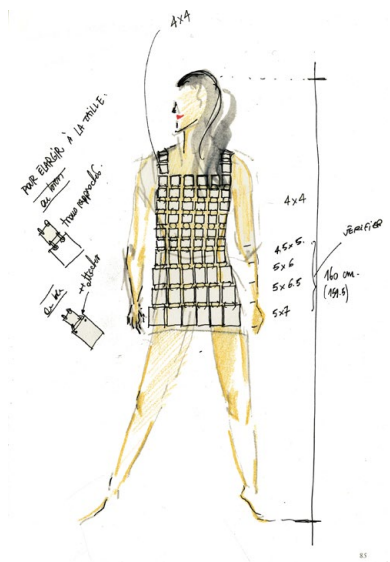 4x4
POUR ELARGIR À LA TAILLE.
trous rapprochés.
+ attaches
4x4
4.5x5.
5x6
5x6.5
5x7
VERIFIER
160 cm.
(159.5)
85